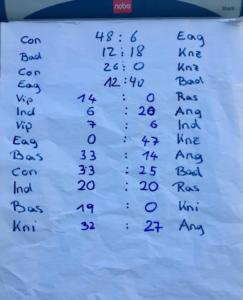 nobo
Con 48 : 6 Eag
Bad 12 : 18 Knz
Con 26 : 0 Knz
Eag 12 : 40 Bad
Vip 14 : 0 Ras
Ind 6 : 20 Ang
Vip 7 : 6 Ind
Eag 0 : 47 Knz
Bas 33 : 14 Ang
Con 33 : 25 Bad
Ind 20 : 20 Ras
Bas 19 : 0 Kni
Kni 32 : 27 Ang